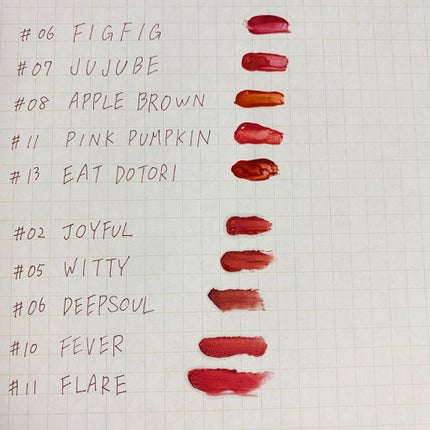 #06 FIGFIG
#07 JUJUBE
#08 APPLE BROWN
#11 PINK PUMPKIN
#13 EAT DOTORI
#02 JOYFUL
#05 WITTY
#06 DEEPSOUL
#10 FEVER
#11 FLARE